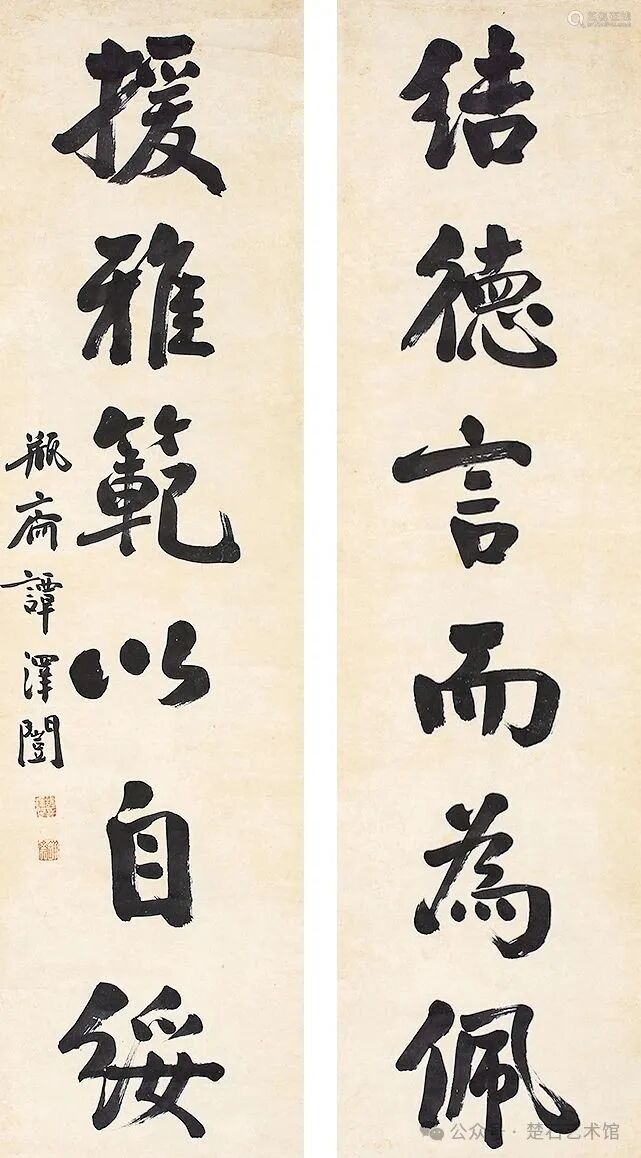 结德言而為佩
援雅範以自綏
瓶齋譚澤闓
公众号·楚石艺术馆